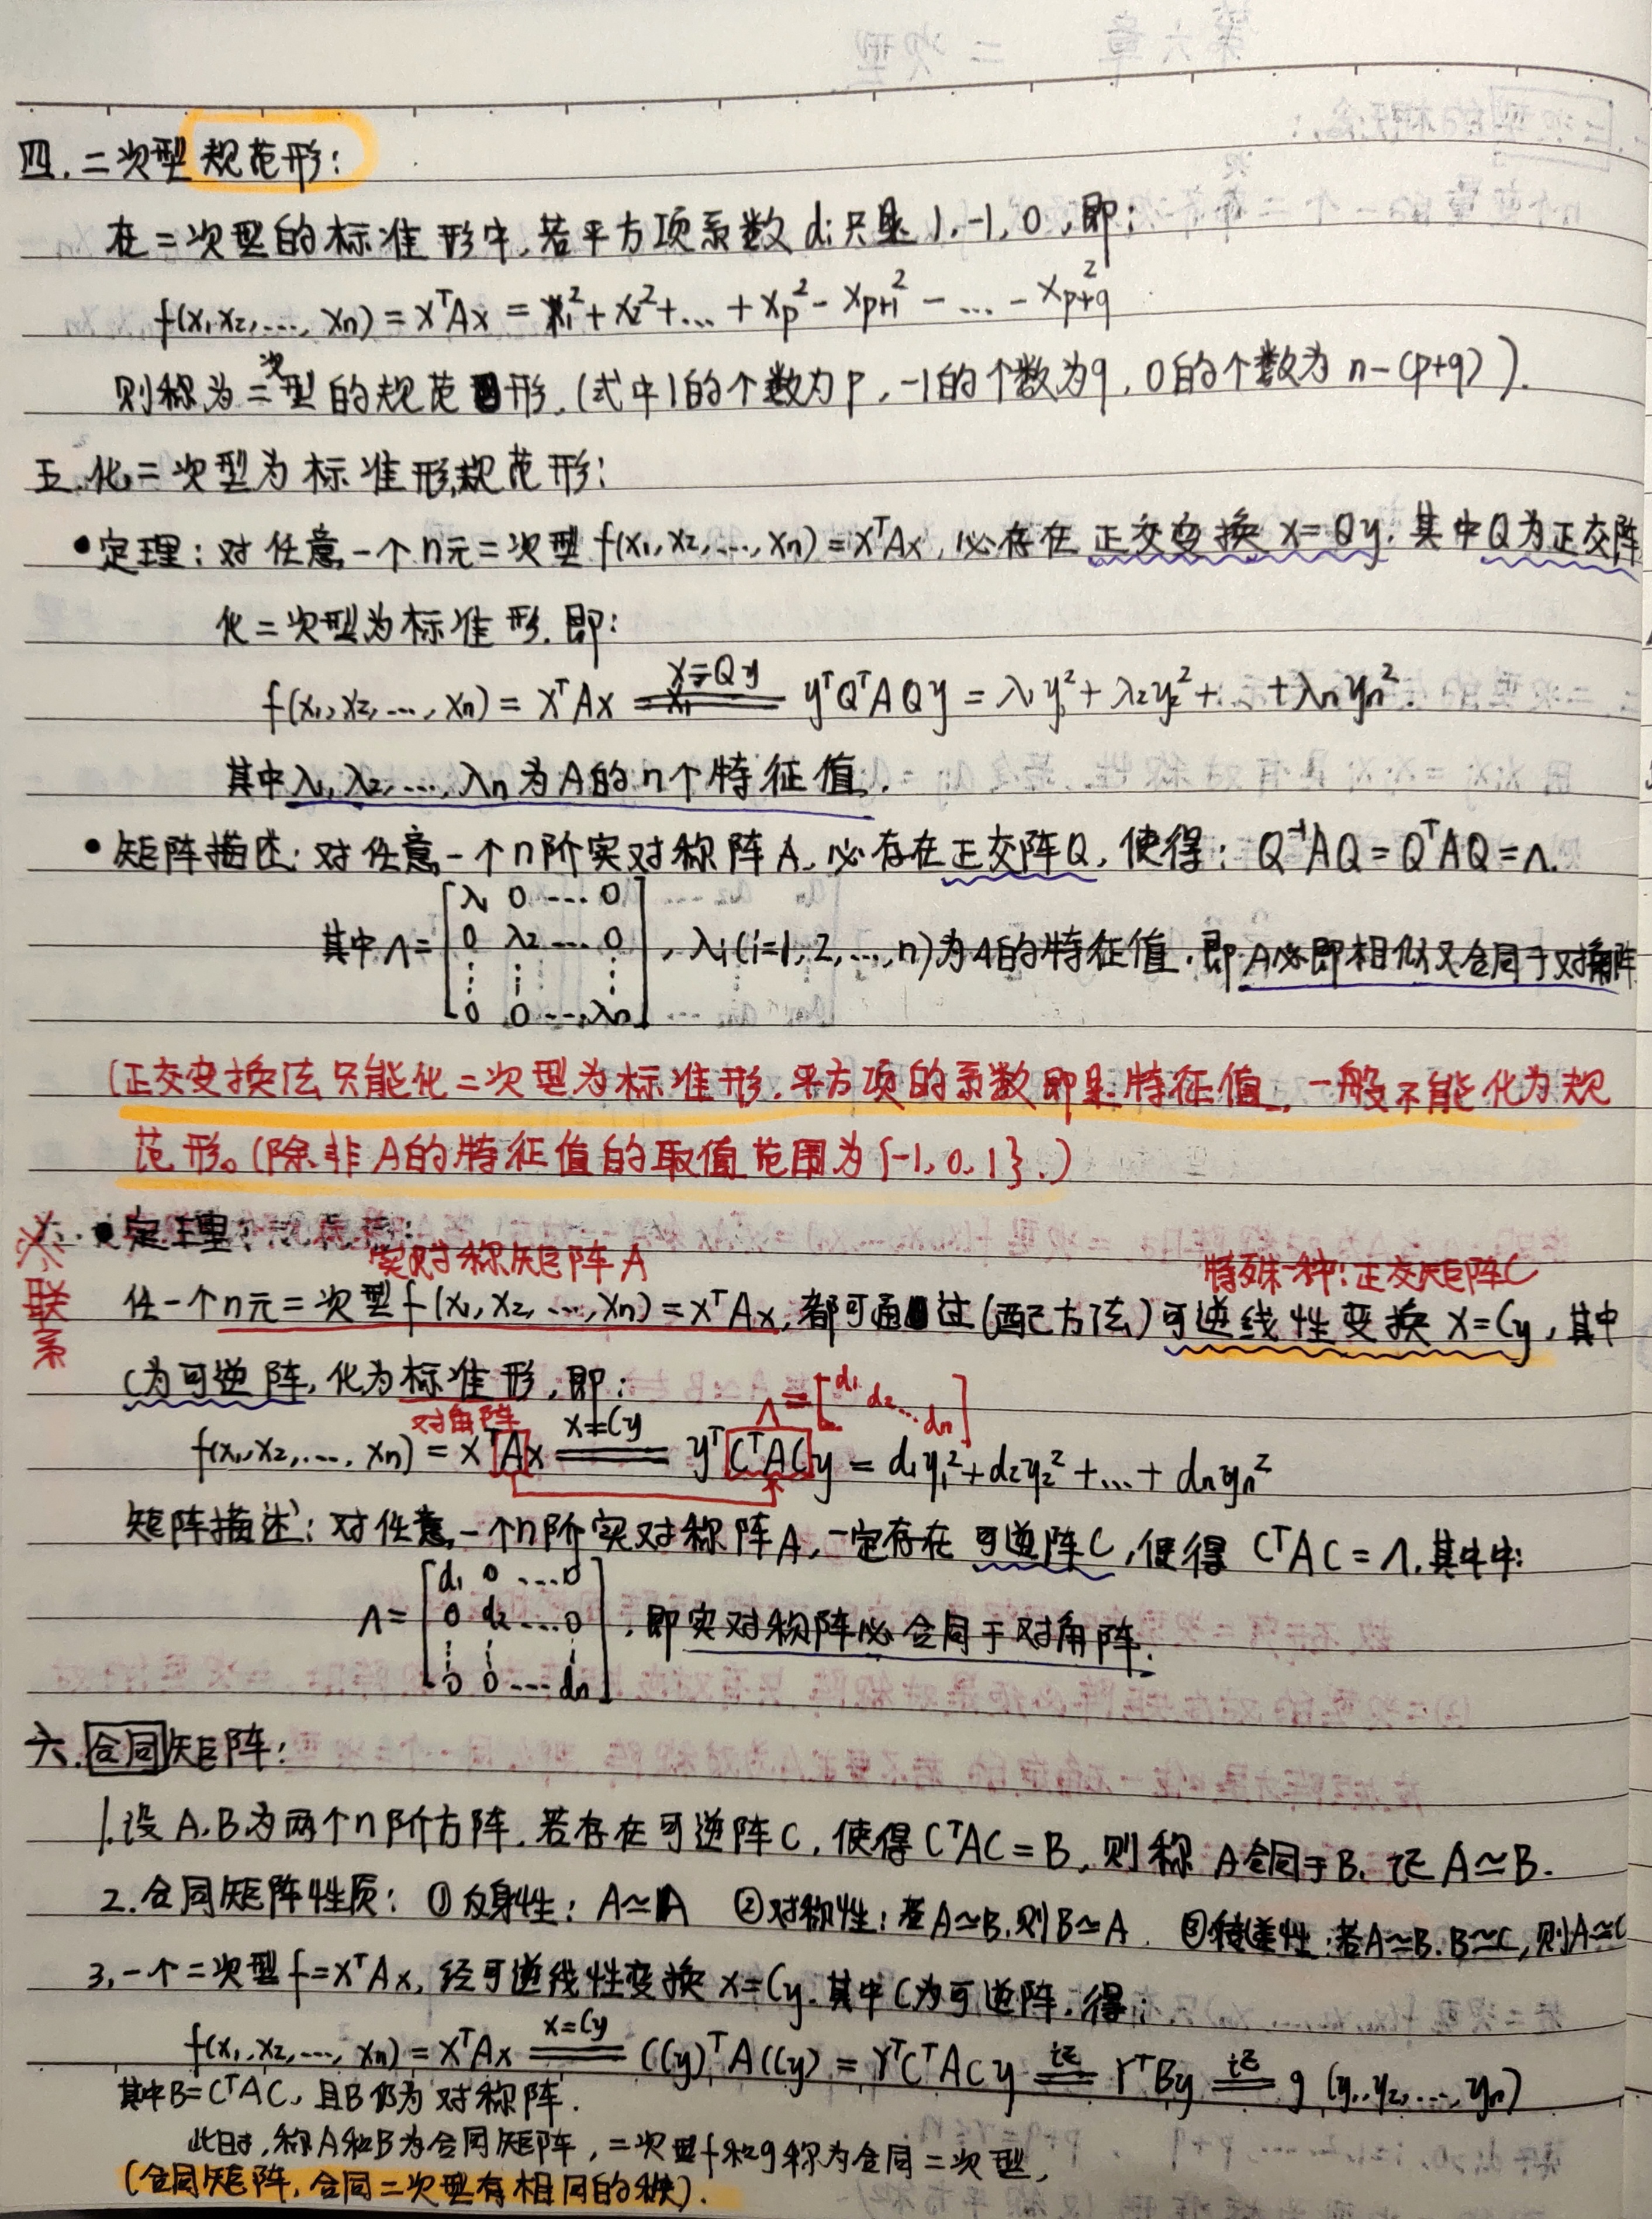 四.二次型规范形:
在二次型的标准形中,若平方项系数di只是1,-1,0,即:
f(x₁,x₂,...,xn)=xᵀAx=x₁²+x₂²+...+xp²-xp+1²-...-xp+q²
则称为二次型的规范形.(式中1的个数为p,-1的个数为q,0的个数为n-(p+q)).
五.化二次型为标准形,规范形:
•定理:对任意一个n元二次型f(x₁,x₂,...,xn)=xᵀAx,必存在正交变换x=Qy.其中Q为正交阵
化二次型为标准形.即:
f(x₁,x₂,...,xn)=xᵀAx x=Qy yᵀQᵀAQy=λ₁y₁²+λ₂y₂²+ +λnyn².
其中λ₁,λ₂,...,λn为A的n个特征值.
•矩阵描述:对任意一个n阶实对称阵A,必存在正交阵Q,使得:Q⁻¹AQ=QᵀAQ=Λ.
其中Λ=[λ₁ 0 ... 0
0 λ₂ ... 0
⋮ ⋮ ⋮
0 0 ... λn],λi(i=1,2,...,n)为A的特征值.即A必即相似又合同于对角阵
(正交变换法只能化二次型为标准形.平方项的系数即是特征值.一般不能化为规
范形。(除非A的特征值的取值范围为{-1,0,1}.)
※联系
•定理:
实对称矩阵A 特殊一种:正交矩阵C
任一个n元二次型f(x₁,x₂,...,xn)=xᵀAx,都可通过(配方法)可逆线性变换x=Cy,其中
C为可逆阵,化为标准形,即:
对角阵 Λ=[d₁ d₂...dn]
f(x₁,x₂,...,xn)=xᵀAx x=Cy yᵀCᵀACy=d₁y₁²+d₂y₂²+...+dnyn²
矩阵描述:对任意一个n阶实对称阵A,一定存在可逆阵C,使得CᵀAC=Λ.其中:
Λ=[d₁ 0 ...0
0 d₂ ...0
⋮ ⋮ ⋮
0 0 ... dn],即实对称阵必合同于对角阵.
六.合同矩阵:
1.设A.B为两个n阶方阵.若存在可逆阵C,使得CᵀAC=B,则称A合同于B.记A≃B.
2.合同矩阵性质:①反身性:A≃A ②对称性:若A≃B.则B≃A. ③传递性:若A≃B.B≃C,则A≃C
3.一个二次型f=xᵀAx,经可逆线性变换x=Cy.其中C为可逆阵.得:
f(x₁,x₂,...,xn)=xᵀAx x=Cy (Cy)ᵀA(Cy)=YᵀCᵀACy 记 YᵀBy 记 g(y₁,y₂,...,yn)
其中B=CᵀAC,且B仍为对称阵.
此时,称A和B为合同矩阵,二次型f和g称为合同二次型,
(合同矩阵,合同二次型有相同的秩).